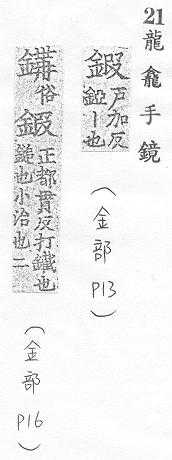 21龍龕手鏡
鍜戸加反錏丨也
（金部P13）
俗鍛正都貫反打鐵也鎚也小冶也二
（金部P16）